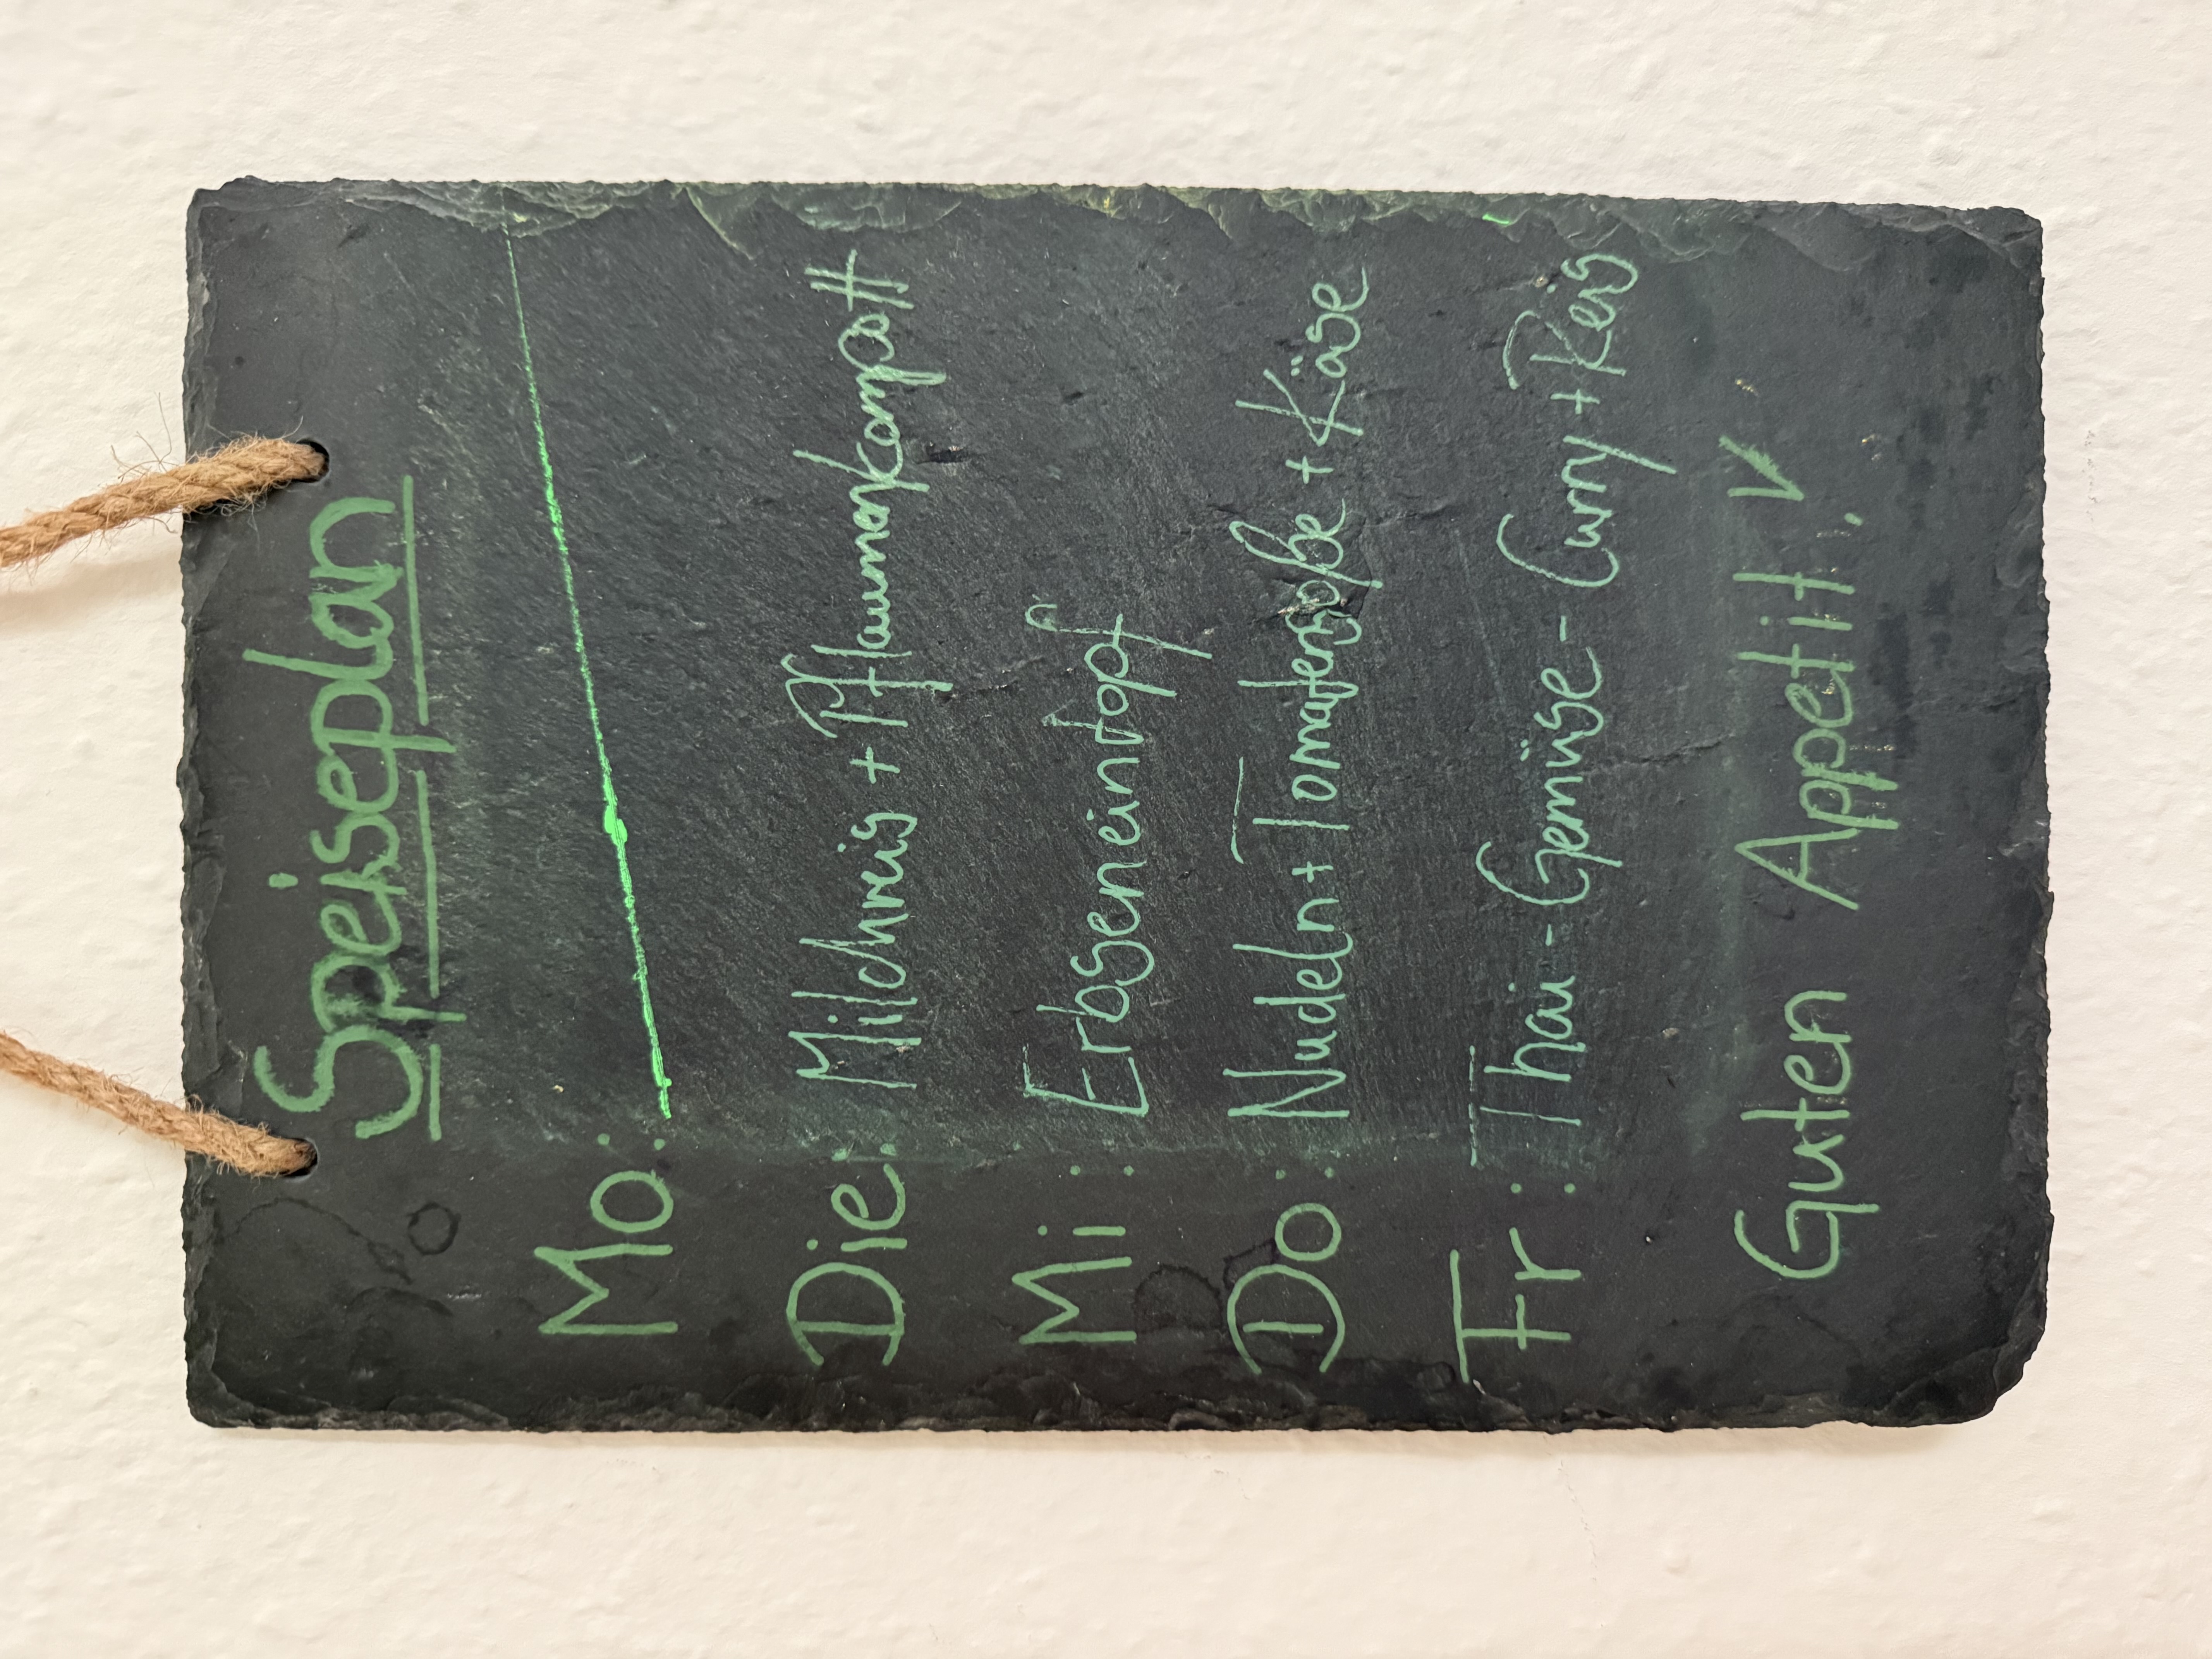 Speiseplan
Mo:
Die: Milchreis + Pflaumenkompott
Mi: Erbseneintopf
Do: Nudeln + Tomatensoße + Käse
Fr: Thai-Gemüse-Curry + Reis
Guten Appetit!